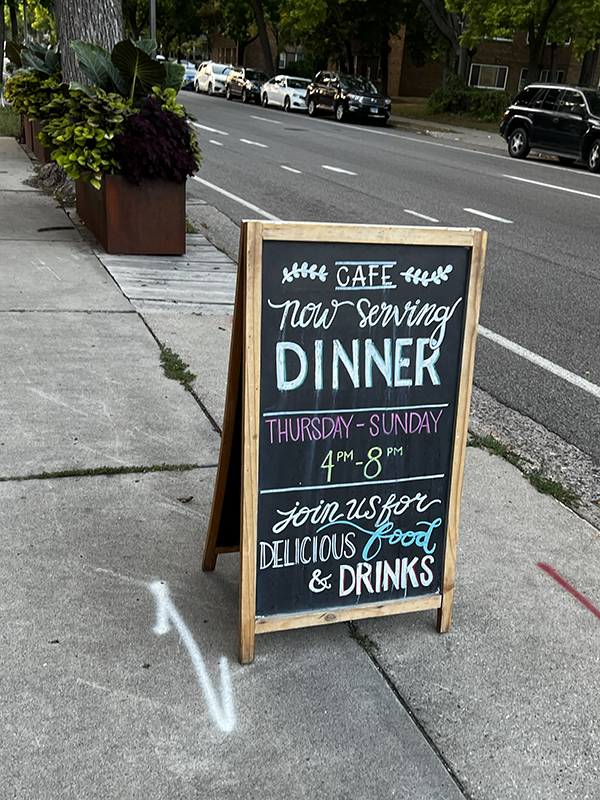 CAFE
now serving
DINNER
THURSDAY - SUNDAY
4PM - 8PM
join us for
DELICIOUS food
& DRINKS